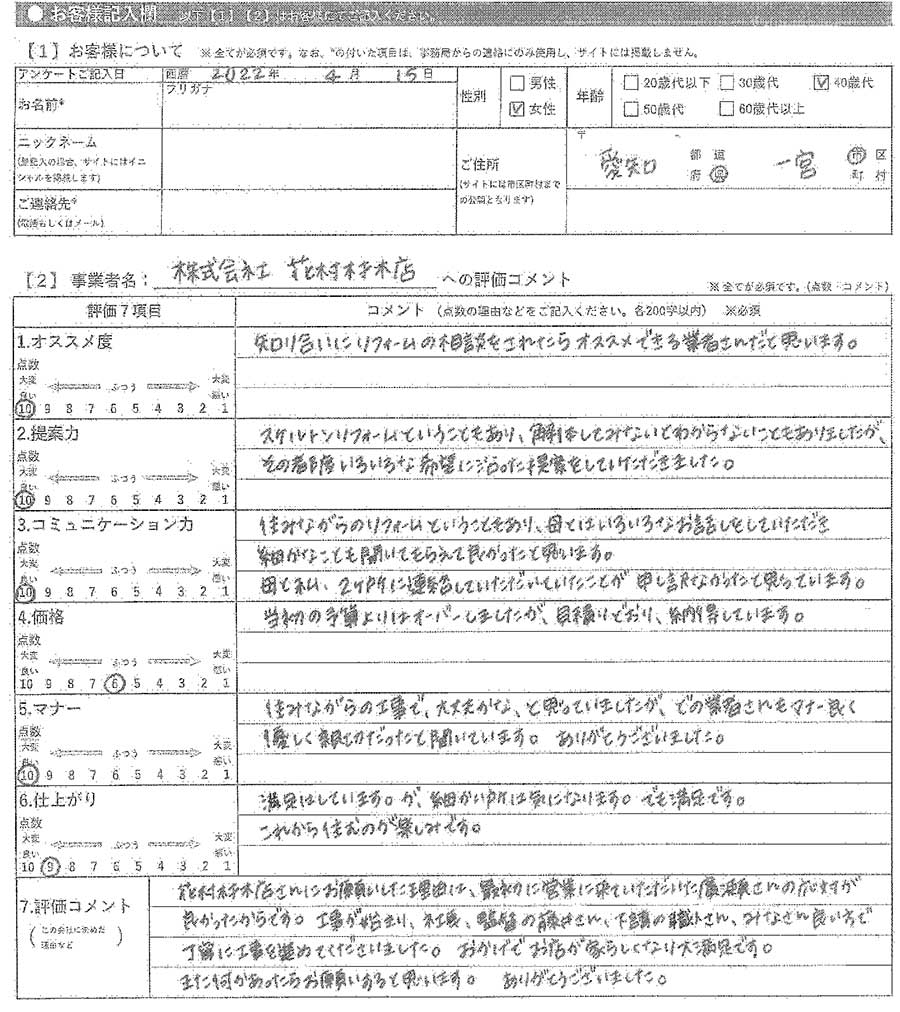 ● お客様記入欄 以下【1】【2】はお客様にてご記入ください。
【1】お客様について ※全てが必須です。なお、*の付いた項目は、事務局からの連絡にのみ使用し、サイトには掲載しません。
アンケートご記入日 西暦 2022年 4月 15日
お名前* フリガナ
性別 □男性 ☑女性
年齢 □20歳代以下 □30歳代 ☑40歳代
□50歳代 □60歳代以上
ニックネーム
(無記入の場合、サイトにはイニシャルを掲載します)
ご住所
(サイトには市区町村までの公開となります)
〒
愛知 都道府県 一宮 市区町村
ご連絡先*
(電話もしくはメール)
【2】事業者名: 株式会社 花村材木店 への評価コメント ※全てが必須です。(点数・コメント)
評価7項目 コメント (点数の理由などをご記入ください。各200字以内) ※必須
1.オススメ度
点数
大変良い ふつう 大変悪い
10 9 8 7 6 5 4 3 2 1
知り合いにリフォームの相談をされたらオススメできる業者さんだと思います。
2.提案力
点数
大変良い ふつう 大変悪い
10 9 8 7 6 5 4 3 2 1
スケルトンリフォームということもあり、解体してみないとわからないこともありましたが、
その都度いろいろな希望に沿った提案をしていただきました。
3.コミュニケーション力
点数
大変良い ふつう 大変悪い
10 9 8 7 6 5 4 3 2 1
住みながらのリフォームということもあり、母とはいろいろなお話しをしていただき
細かなことも聞いてもらえて良かったと思います。
母と私、2ケ所に連絡していただいていたことが申し訳なかったと思っています。
4.価格
点数
大変良い ふつう 大変悪い
10 9 8 7 6 5 4 3 2 1
当初の予算よりはオーバーしましたが、見積りどおり、納得しています。
5.マナー
点数
大変良い ふつう 大変悪い
10 9 8 7 6 5 4 3 2 1
住みながらの工事で、大丈夫かな、と思っていましたが、どの業者さんもマナー良く
優しく親切だったと聞いています。ありがとうございました。
6.仕上がり
点数
大変良い ふつう 大変悪い
10 9 8 7 6 5 4 3 2 1
満足はしています。が、細かい所は気になります。でも満足です。
これから住むのが楽しみです。
7.評価コメント
(この会社に決めた理由など)
花村材木店さんにお願いした理由は、最初に営業に来ていただいた さんの応対が
良かったからです。工事が始まり、社長、監督の さん、下請の職人さん、みなさん良い方で
丁寧に工事を進めてくださいました。おかげでお店が家らしくなり大満足です。
また何かあったらお願いすると思います。ありがとうございました。